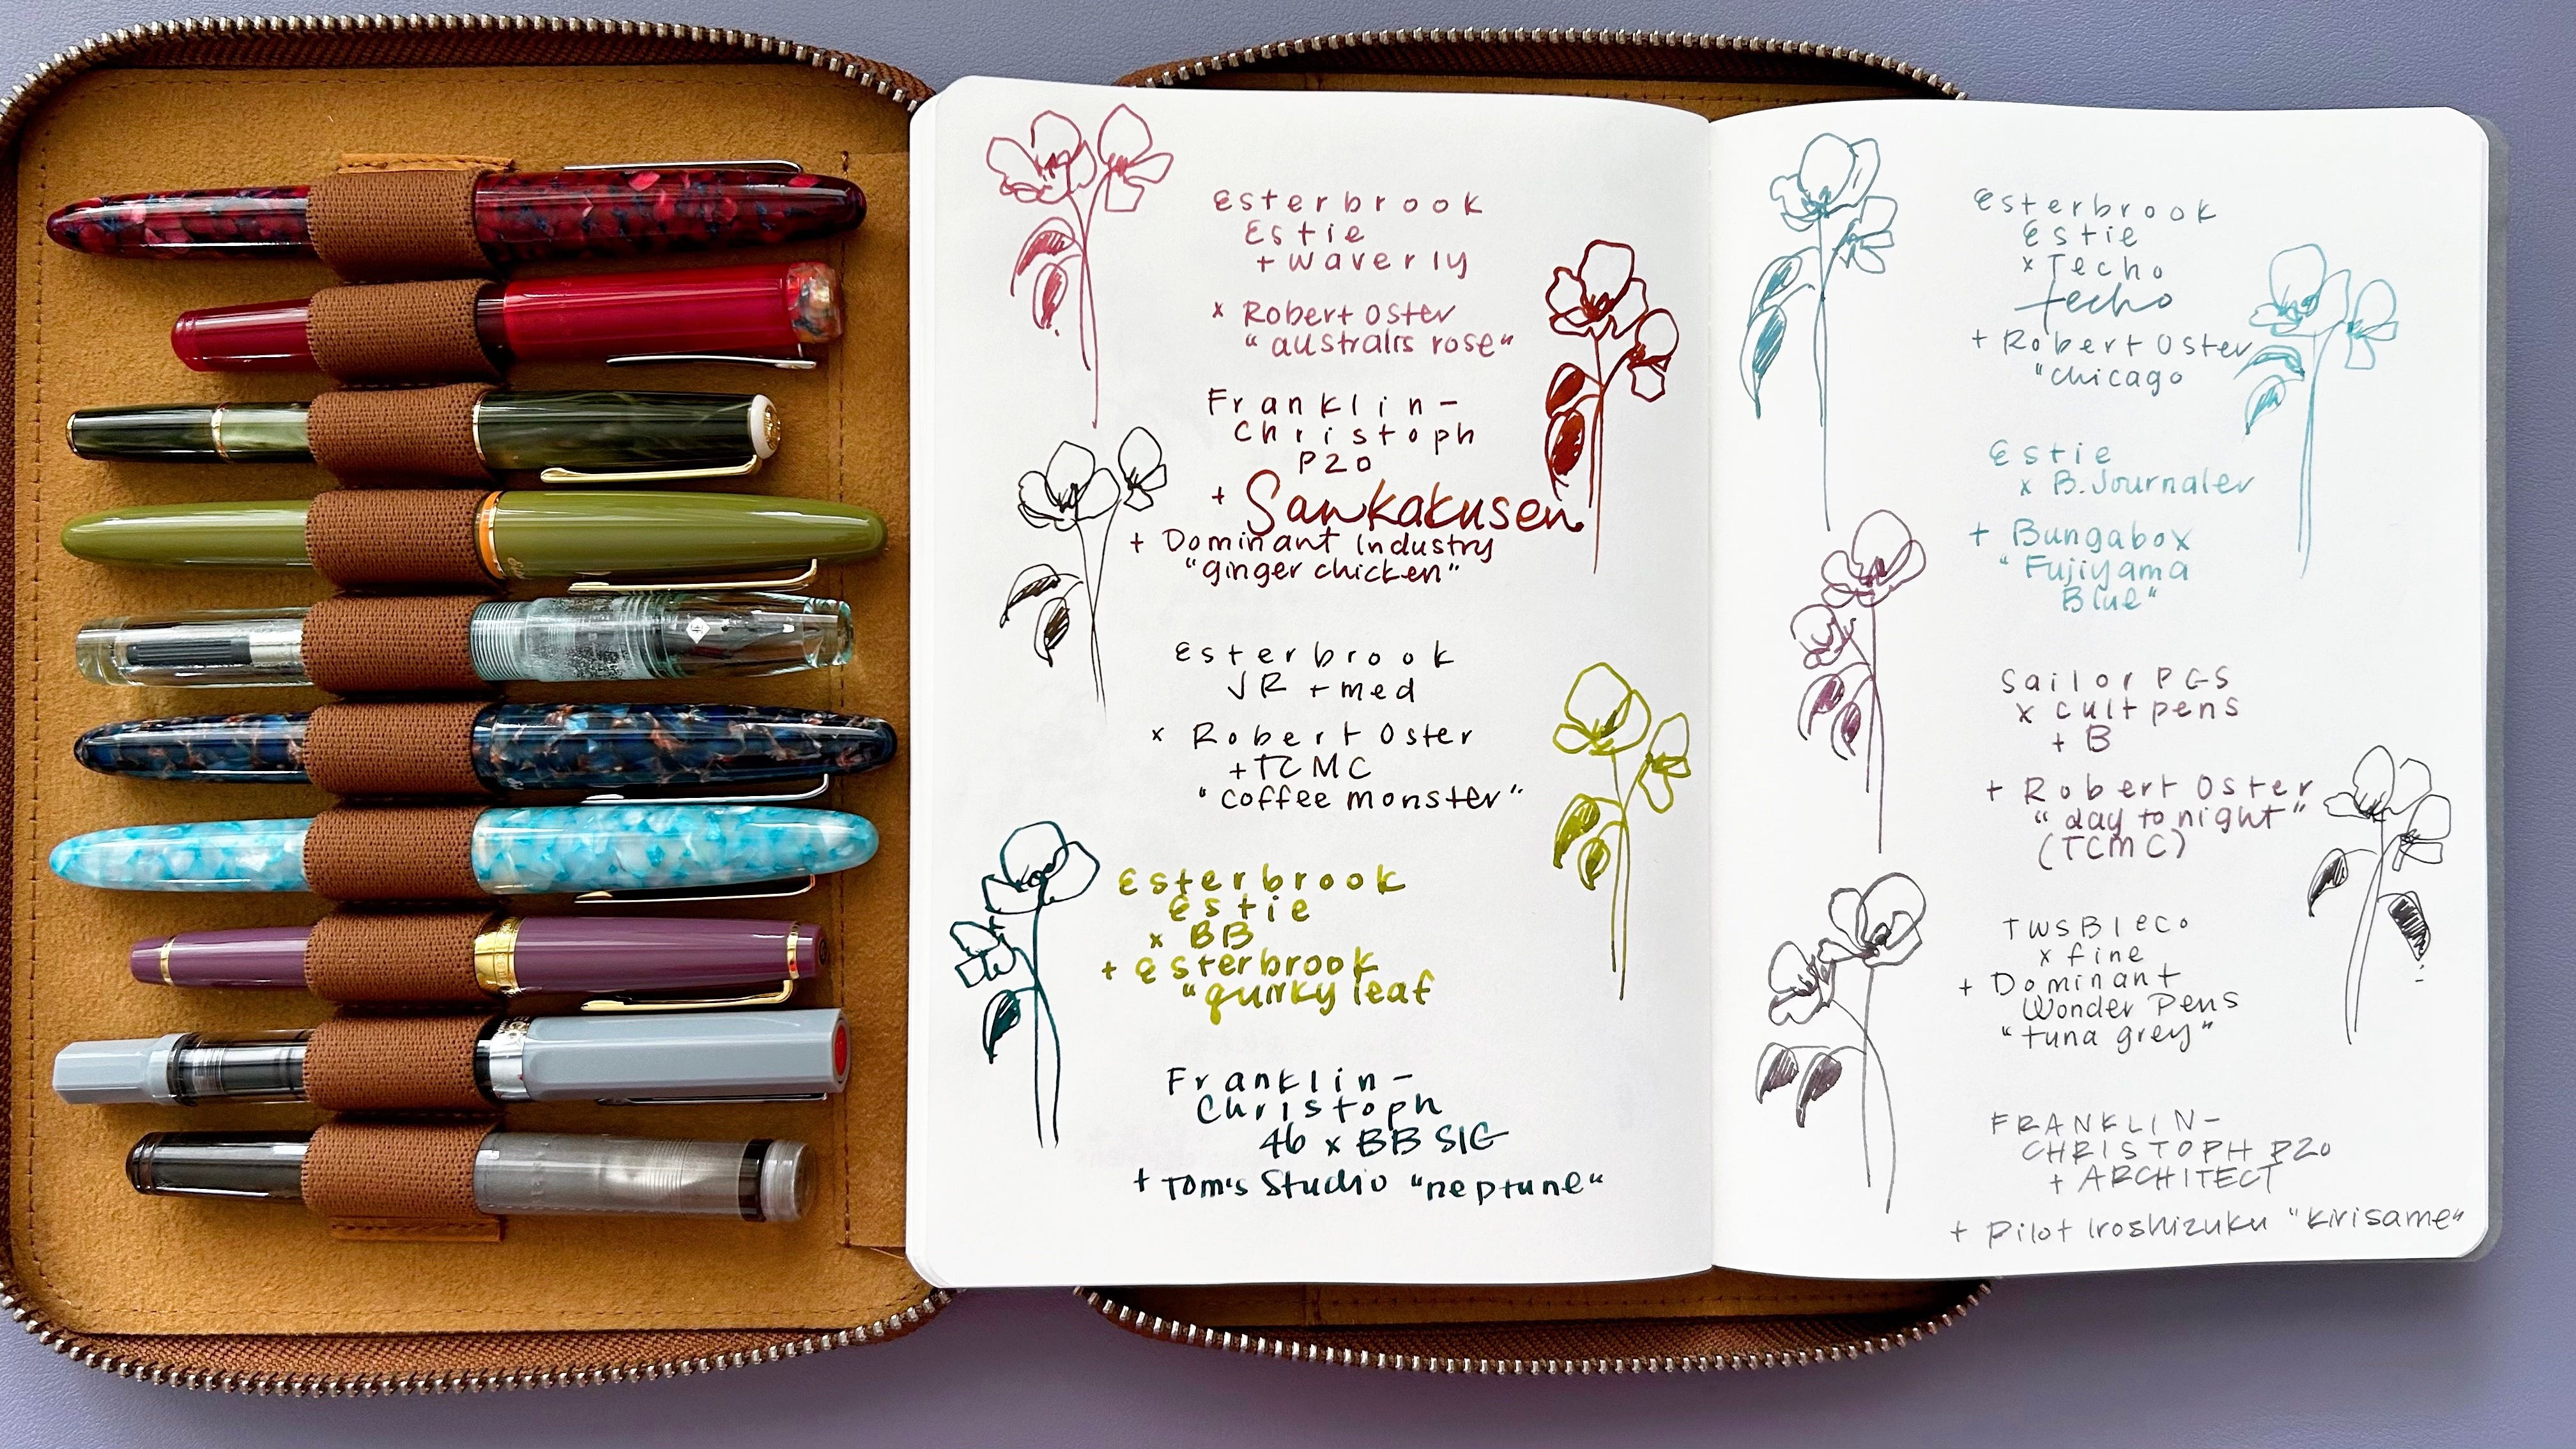 Esterbrook
Estie
+ waverly
x Robert Oster
"australis rose"
Franklin-
Christoph
P20
+ Sankakusen
+ Dominant Industry
"ginger chicken"
Esterbrook
JR + med
x Robert Oster
+ TCMC
"coffee monster"
Esterbrook
Estie
x BB
+ Esterbrook
"quirky leaf
Franklin-
Christoph
46 x BB SIG
+ Tom's Studio "neptune"
Esterbrook
Estie
x Techo
techo
+ Robert Oster
"chicago
Estie
x B. Journaler
+ Bungabox
"Fujiyama
Blue"
Sailor PGS
x cult pens
+ B
+ Robert Oster
"day to night"
(TCMC)
TWSBI eco
x fine
+ Dominant
Wonder Pens
"tuna grey"
FRANKLIN-
CHRISTOPH P20
+ ARCHITECT
+ Pilot Iroshizuku "kirisame"